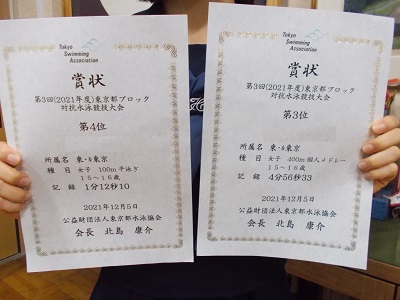 Tokyo
Swimming
Association
賞状
第3回(2021年度)東京都ブロック
対抗水泳競技大会
第4位
所属名 東・東京
種目 女子 100m 平泳ぎ
15～16歳
記録 1分12秒10
2021年12月5日
公益財団法人東京都水泳協会
会長 北島 康介
Tokyo
Swimming
Association
賞状
第3回(2021年度)東京都ブロック
対抗水泳競技大会
第3位
所属名 東・東京
種目 女子 400m 個人メドレー
15～16歳
記録 4分56秒33
2021年12月5日
公益財団法人東京都水泳協会
会長 北島 康介